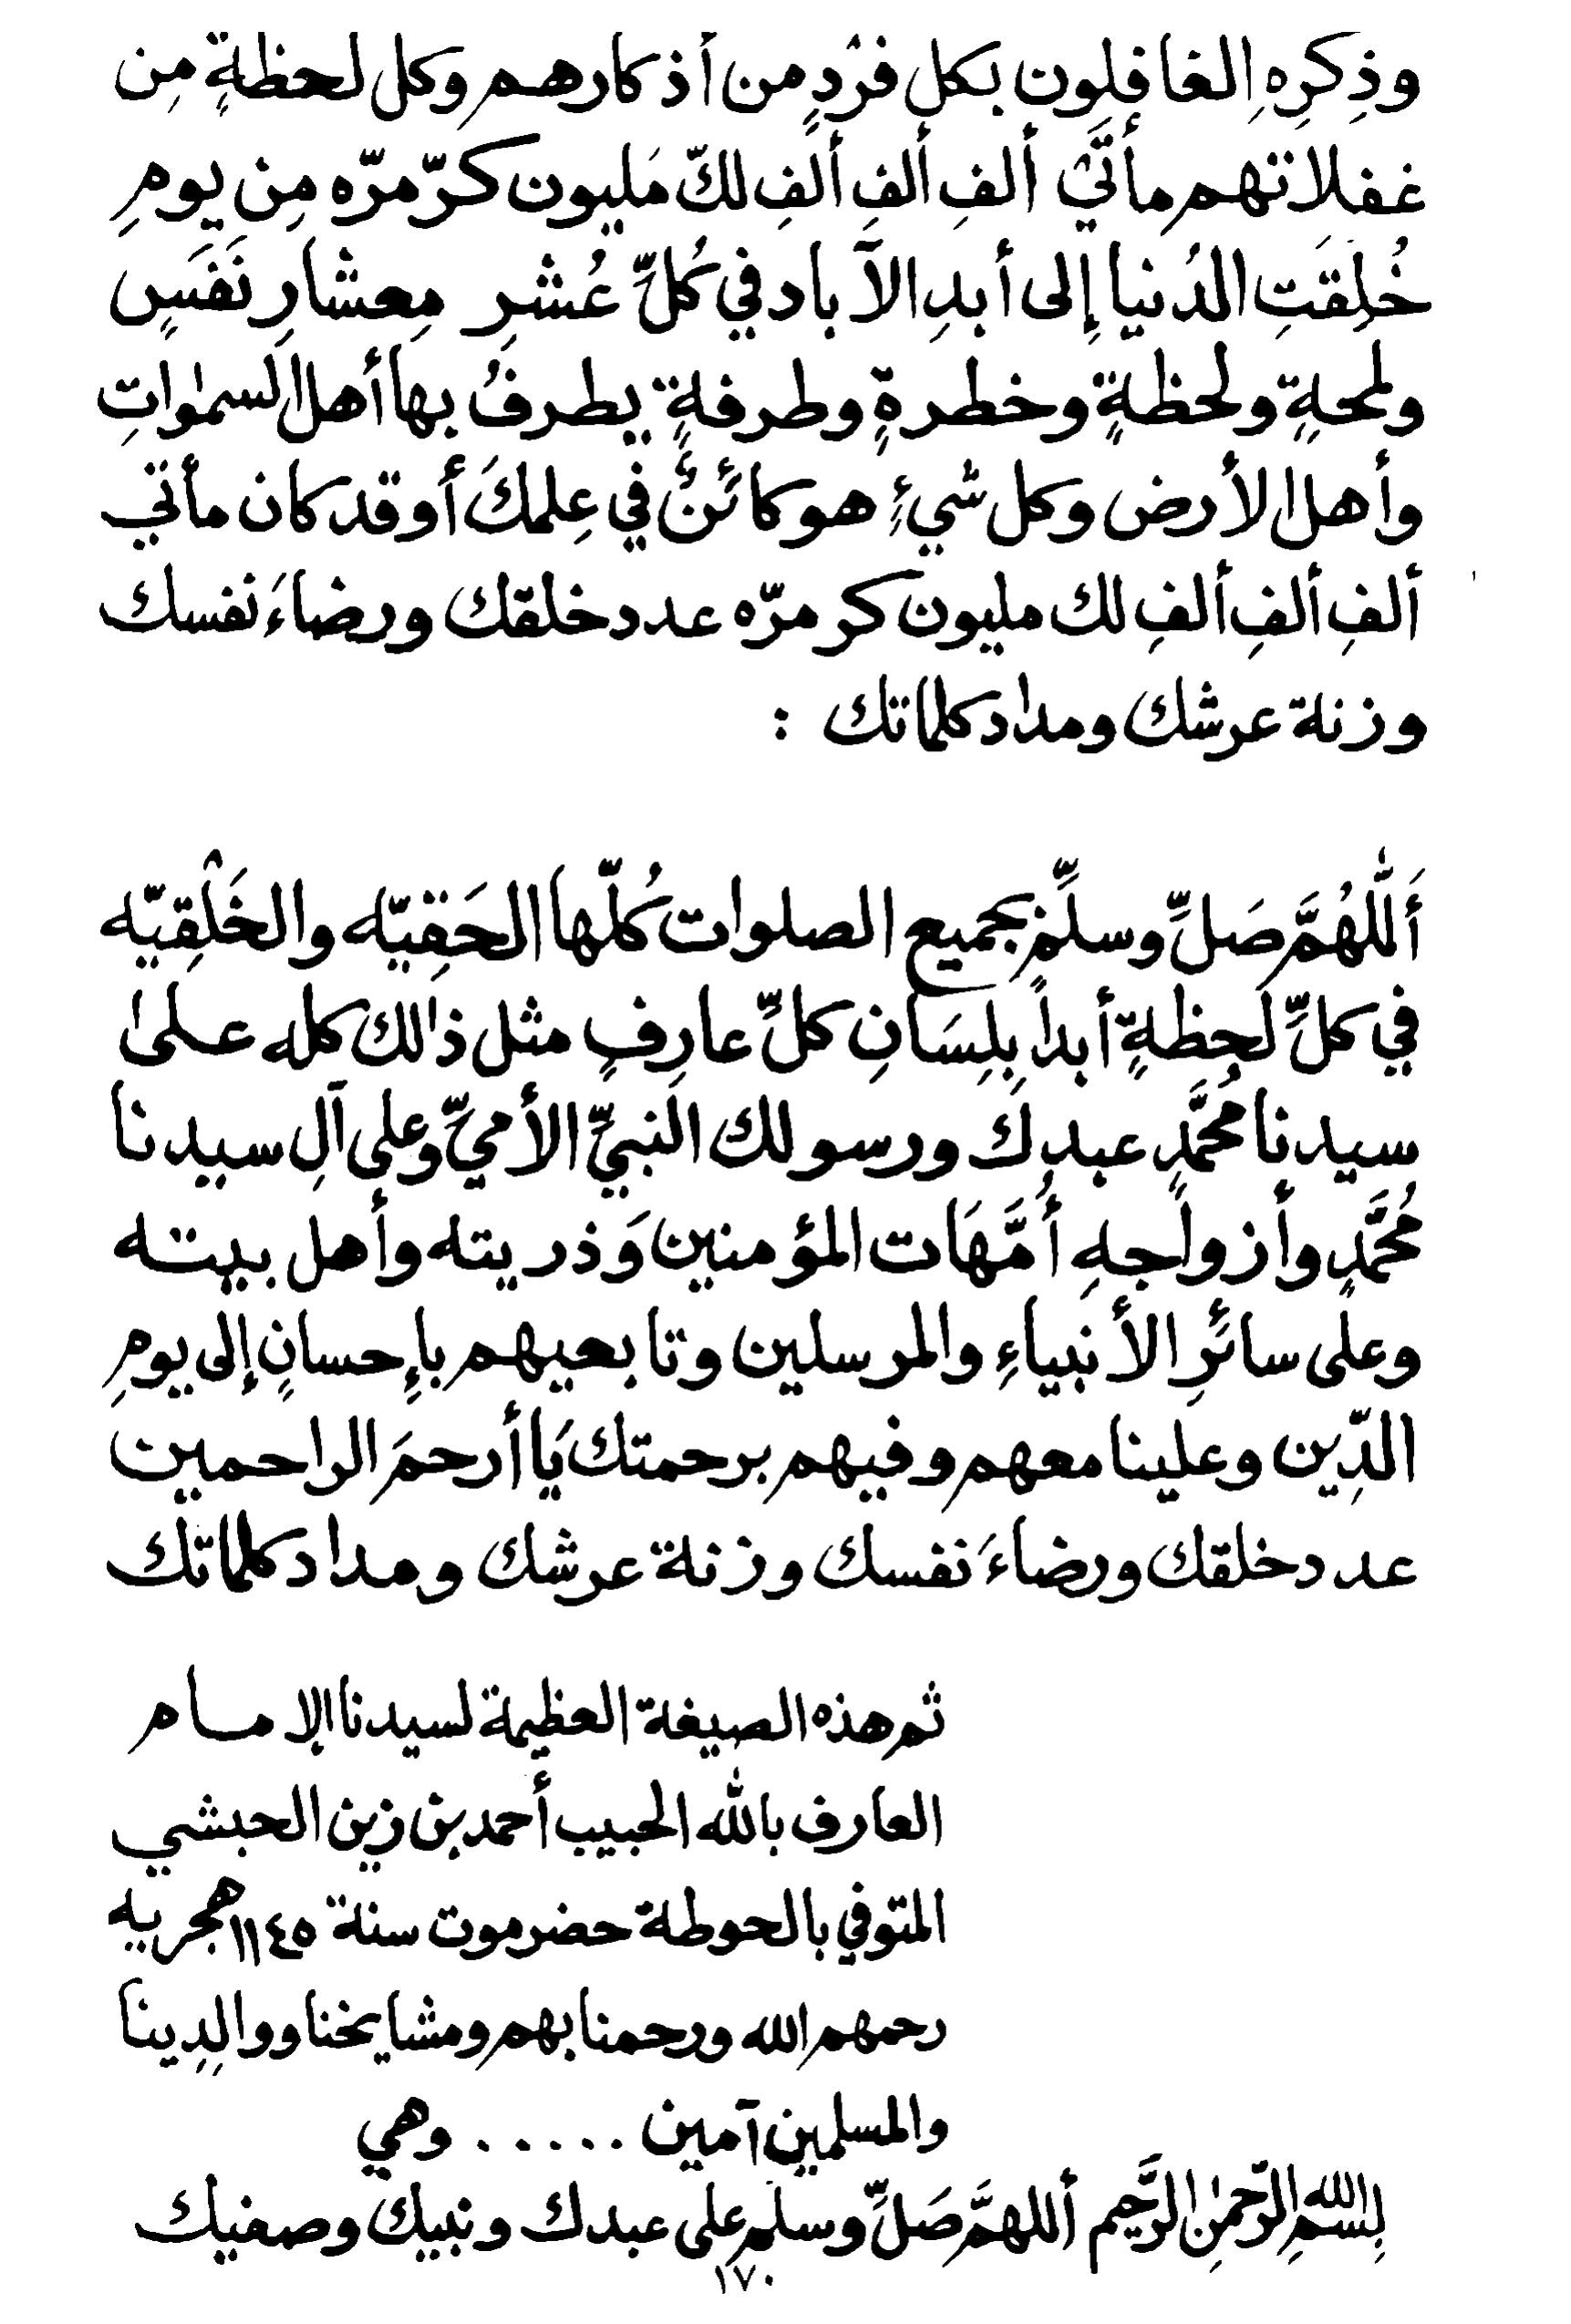 وذِكرِهِ الغافِلون بكل فرْدٍ من أذكارهم وكل لحظةٍ مِن
غفلاتهم مأتَيْ ألفِ ألفِ ألفِ لكّ مَليون كرّ مرّه مِن يومِ
خُلِقَتِ الدُنيا إِلى أبدِ الآباد في كُلِّ عُشرِ مِعشارِ نَفَسٍ
ولمحةٍ ولحظةٍ وخطرةٍ وطرفةٍ يطرفُ بها أهل السمٰواتِ
وأهل الأرض وكل شيءٍ هو كائنٌ في عِلمكَ أو قد كان مأتي
ألفِ ألفِ ألفِ لك مليون كر مرّه عدد خلقك ورضاءَ نفسك
وزنة عرشك ومداد كلماتك :
أَللّٰهُمَّ صَلِّ وسلِّم بجميع الصلوات كُلّها الحَقِيّه والخَلْقِيّه
في كلِّ لحظةٍ أبداً بِلِسَانِ كلِّ عارِفٍ مثل ذٰلك كله على
سيدنا مُحَمَّدٍ عبدِك ورسولك النبيِّ الأميِّ وعلى آلِ سيدنا
مُحَمَّدٍ وأزواجِهِ أُمَّهَات المؤمنين وَذريته وأهل بيته
وعلى سائرِ الأنبياءِ والمرسلين وتابعيهم بإِحسانٍ إلى يومِ
الدِّين وعلينا معهم وفيهم برحمتك يَا أرحمَ الراحمين
عدد خلقك ورضاءَ نفسك وزنة عرشك ومداد كلماتك
ثم هذه الصيغة العظيمة لسيدنا الإمام
العارف بالله الحبيب أحمد بن زين الحبشي
المتوفي بالحوطة حضرموت سنة ١١٤٥ هجريه
رحمهم الله ورحمنا بهم ومشايخنا ووالِدِينا
والمسلمين آمين ..... وهي
بِسمِ اللهِ الرَّحمٰنِ الرَّحِيم أللهمَّ صَلِّ وسلم على عبدك ونبيك وصفيك
١٧٠